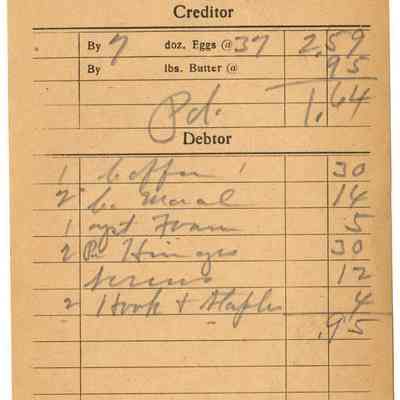 Creditor
By 7 doz. Eggs @ 37 2.59
By lbs. Butter @ .95
Pd. 1.64
Debtor
1 Coffee 1 30
2 C. Meal 14
1 Foam 5
2 Pr Hinges 30
Screws 12
2 Hook + Staples 4
.95